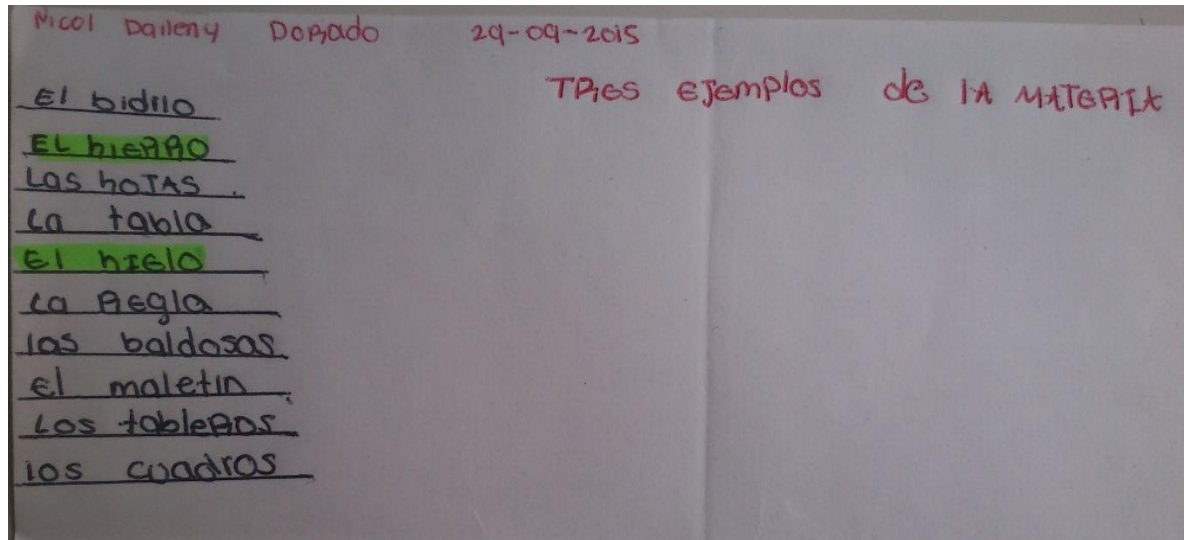 Nicol Daileny Dorado 29-09-2015
TRES EJEMPLOS de lA MATERIA
El bidrio
EL hiERRO
Las hoJAS.
La tabla
El hIElo
La REgla
las baldosas.
El maletin.
Los tableROS
los cuadros